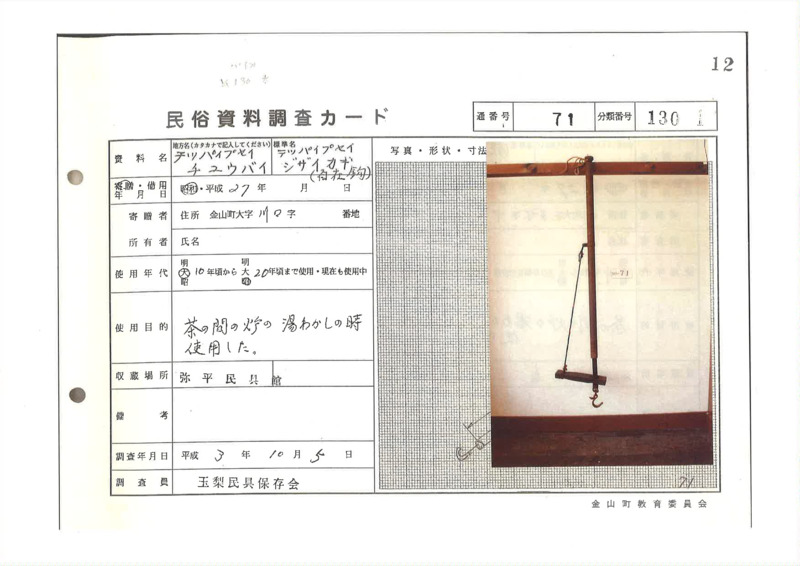 12
民俗資料調査カード
通番号 71 分類番号 130 1
資料名
地方名(カタカナで記入してください)
テツパイプセイ
チユウバイ
標準名
テツパイプセイ
ジザイカギ
(自在鉤)
寄贈・借用
年月日
昭和・平成 27年 月 日
寄贈者 住所 金山町大字 川口 字 番地
所有者 氏名
使用年代
明 大 昭 10年頃から 明 大 昭 20年頃まで使用・現在も使用中
使用目的
茶の間の炉の湯わかしの時
使用した。
収蔵場所 弥平民具館
備考
調査年月日 平成 3年 10月 5日
調査員 玉梨民具保存会
写真・形状・寸法
71
71
金山町教育委員会